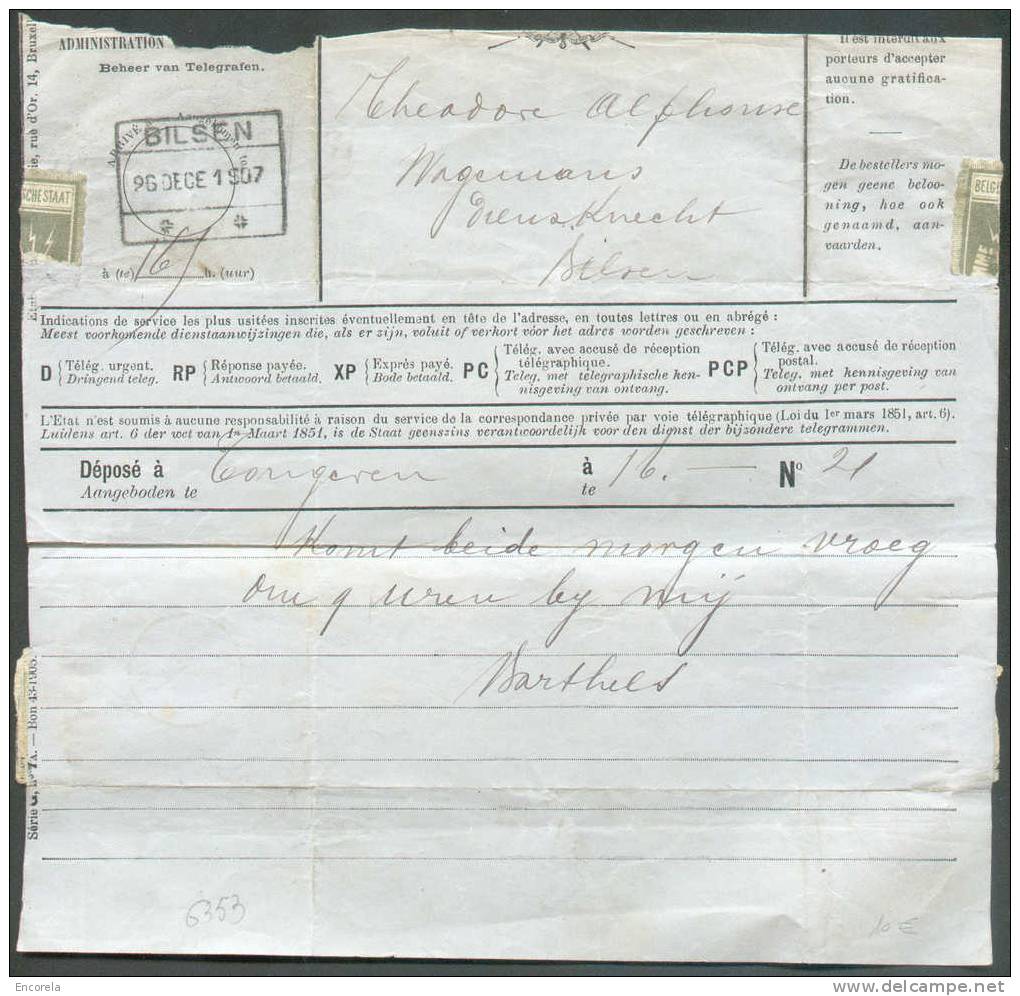 ADMINISTRATION
Beheer van Telegrafen.
BILSEN
26 DECE 1907
à (te) 16 h. (uur)
Theodore Alphonse
Wagemans
diensknecht
Bilsen
Il est interdit aux
porteurs d'accepter
aucune gratifica-
tion.
De bestellers mo-
gen geene beloo-
ning, hoe ook
genaamd, aan-
vaarden.
rue d'Or, 14, Bruxel
SCHE STAAT
BELGI
Indications de service les plus usitées inscrites éventuellement en tête de l'adresse, en toutes lettres ou en abrégé :
Meest voorkomende dienstaanwijzingen die, als er zijn, voluit of verkort vóór het adres worden geschreven :
D Télég. urgent. Dringend teleg.
RP Réponse payée. Antwoord betaald.
XP Exprès payé. Bode betaald.
PC Télég. avec accusé de réception télégraphique. Teleg. met telegraphische ken-nisgeving van ontvang.
PCP Télég. avec accusé de réception postal. Teleg. met kennisgeving van ontvang per post.
L'Etat n'est soumis à aucune responsabilité à raison du service de la correspondance privée par voie télégraphique (Loi du 1er mars 1851, art. 6).
Luidens art. 6 der wet van 1n Maart 1851, is de Staat geenszins verantwoordelijk voor den dienst der bijzondere telegrammen.
Déposé à Tongeren à 16. — N° 21
Aangeboden te te
Komt beide morgen vroeg
om 9 uren by mij
Barthels
Série G, no 7A. — Bon 43-1905.
6353
10 €
Encorela
www.delcampe.net